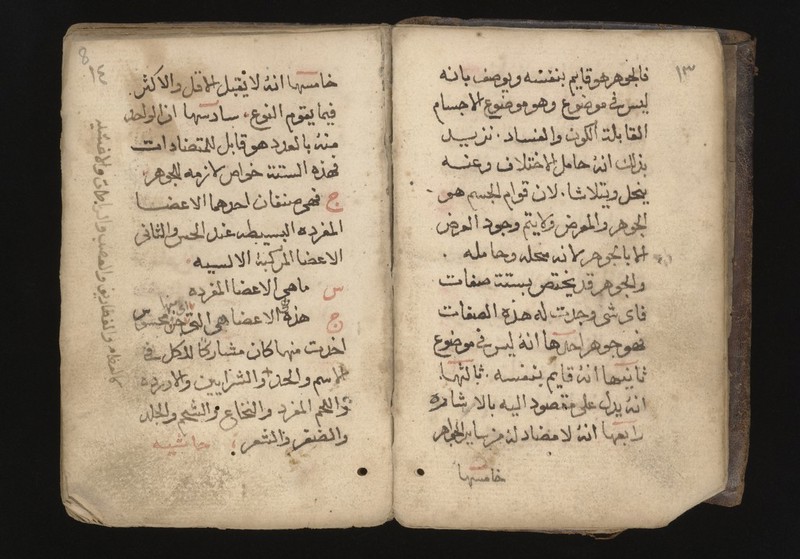 ١٣
فالجوهر هو قايم بنفسه ويوصف بانه
ليس في موضوع وهو موضوع الاجسام
القابلة الكون والفساد. نزيد
بذلك انه حامل الاختلاف وعنه
ينحل ويتلاشا. لان قوام الجسم هو
الجوهر والعرض ولا يتم وجود العرض
الا بالجوهر لانه محله وحامله.
والجوهر قد يختص بستة صفات
فاى شى وجدت له هذه الصفات
فهو جوهر احدها انه ليس في موضوع
ثانيها انه قايم بنفسه. ثالثها
انه يدل على مقصود اليه بالاشاره
رابعها انه لا مضاد له من ساير الجواهر
خامسها
١٤
8
خامسها انه لا يقبل الاقل والاكثر
فيما يقوم النوع. سادسها ان الواحد
منه بالعدد هو قابل للمتضادات
فهذه الستة خواص لازمه للجوهر
ج فهى صنفان احدهما الاعضا
المفرده البسيطه عند الحس والثانى
الاعضا المركبة الاليه
س ما هي الاعضا المفرده
ج هذه الاعضا هي التى اي جزء محسوس
اخذت منها كان مشاركا للكل في
الاسم والحد والشرايين والاورده
واللحم المفرد والنخاع والشحم والجلد
والضفر والشعر؛ حاشيه
كالعظام والغضاريف والعصب والرباطات والاغشيه